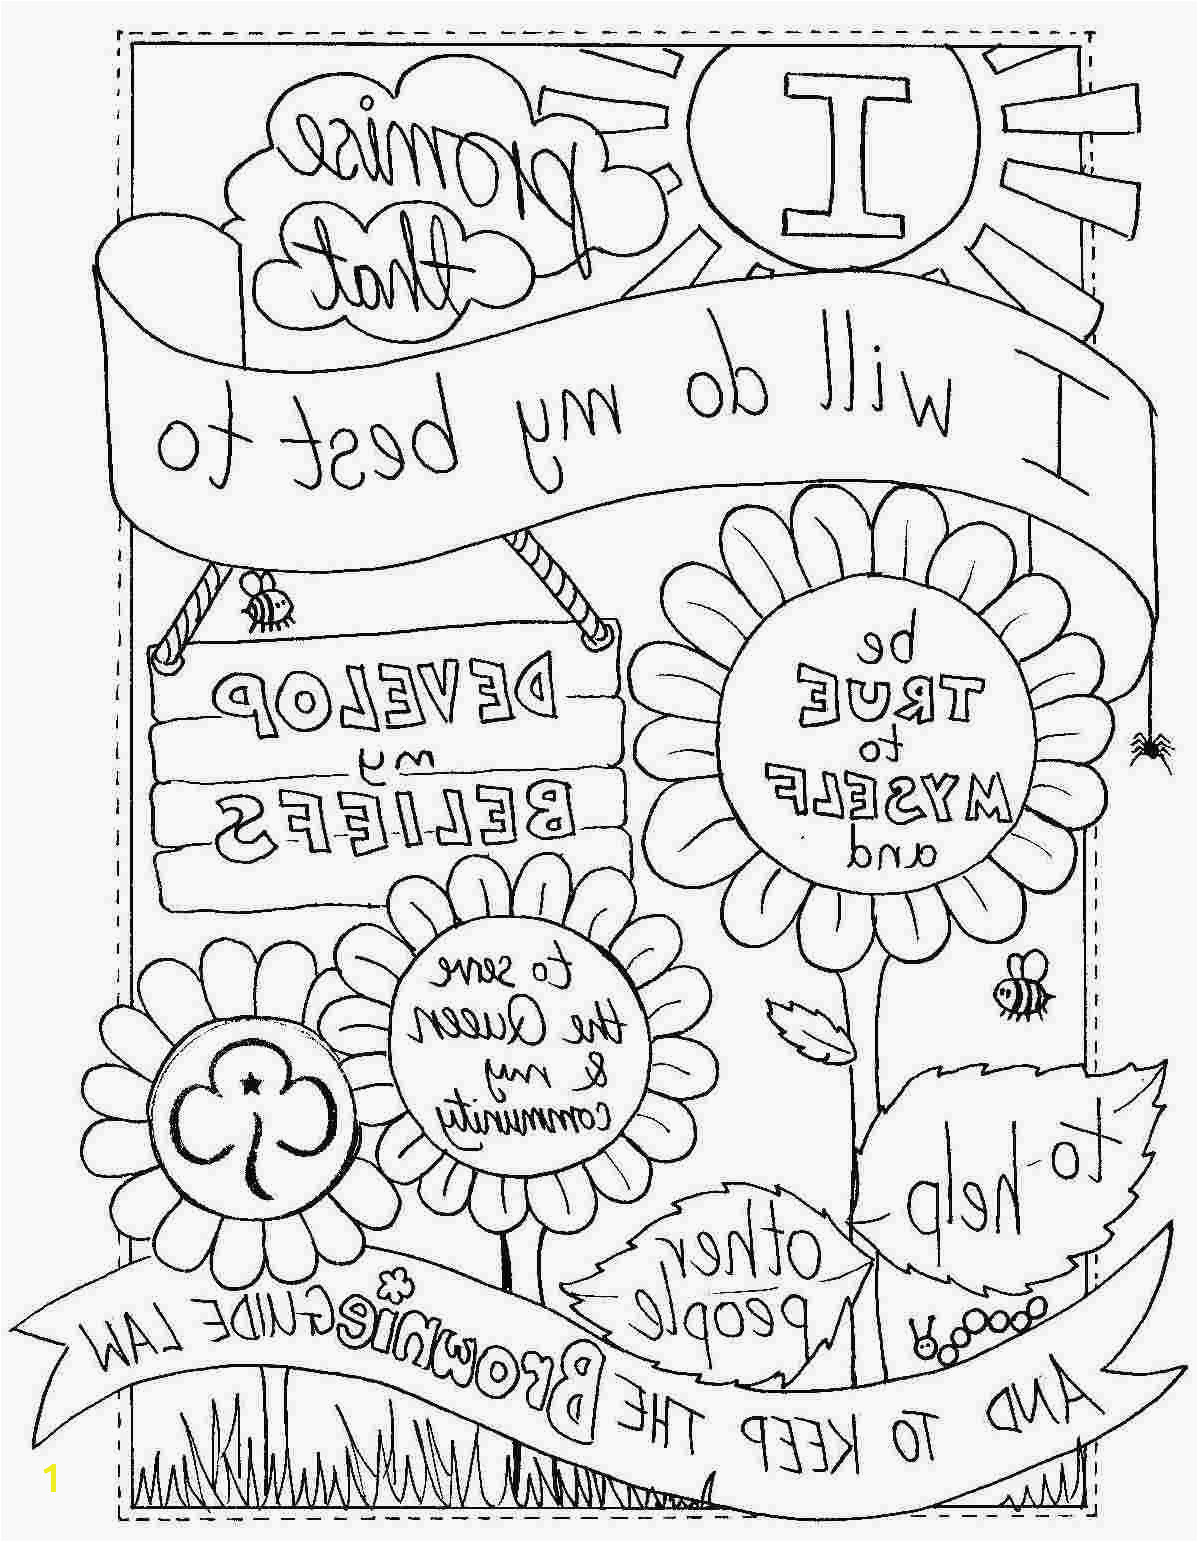 I
promise
that
I will do my best to
be
TRUE
to
MYSELF
and
DEVELOP
my
BELIEFS
to serve
the Queen
& my
community
to help
other
people
AND TO KEEP THE BROWNIE GUIDE LAW
1